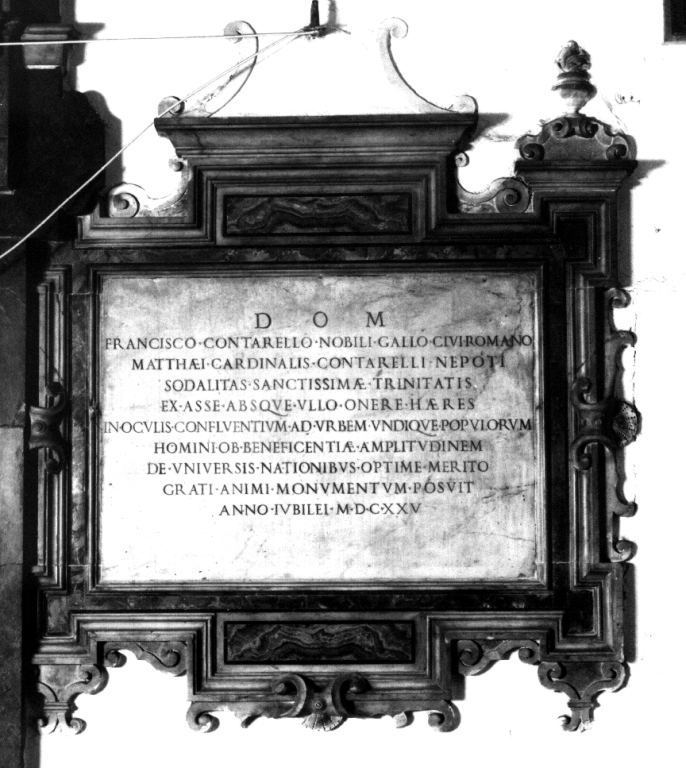 D O M
FRANCISCO·CONTARELLO·NOBILI·GALLO·CIVIROMANO
MATTHÆI·CARDINALIS·CONTARELLI·NEPOTI
SODALITAS·SANCTISSIMÆ·TRINITATIS
EX·ASSE·ABSQVE·VLLO·ONERE·HÆRES
INOCVLIS·CONFLVENTIVM·AD·VRBEM·VNDIQVE·POPVLORVM
HOMINI·OB·BENEFICENTIÆ·AMPLITVDINEM
DE·VNIVERSIS·NATIONIBVS·OPTIME·MERITO
GRATI·ANIMI·MONVMENTVM·POSVIT
ANNO·IVBILEI·M·D·C·XXV